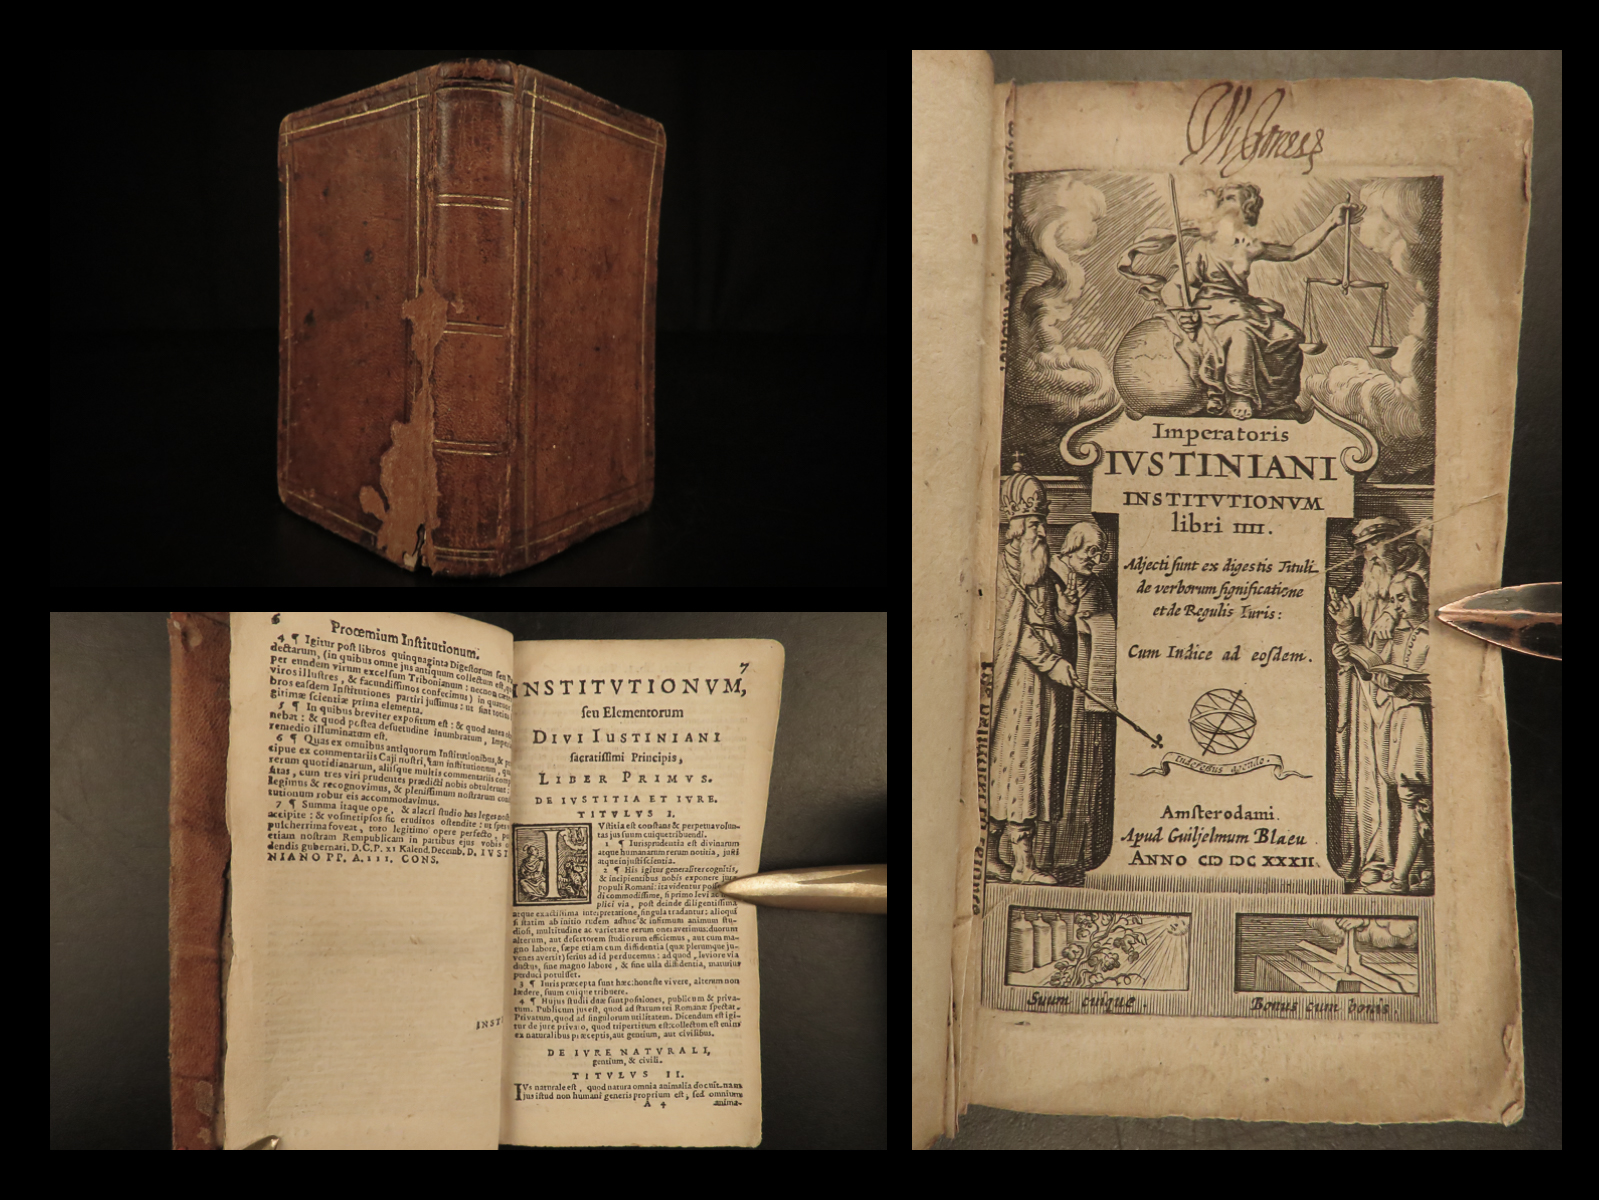 6
Prooemium Institutionum.
4 ¶ Igitur post libros quinquaginta Digestorum seu
dectarum, (in quibus omne jus antiquum collectum est,
per eundem virum excelsum Tribonianum: necnon
viros illustres, & facundissimos confecimus) in
bros easdem Institutiones partiri jussimus: ut sint
gitimæ scientiæ prima elementa.
5 ¶ In quibus breviter expositum est: & quod antea
nebat: & quod postea desuetudine inumbratum,
remedio illuminatum est.
6 ¶ Quas ex omnibus antiquorum Institutionibus, &
cipue ex commentariis Caji nostri, tam institutionum,
rerum quotidianarum, aliisque multis commentariis
sitas, cum tres viri prudentes prædicti nobis obtulerunt:
legimus & recognovimus, & plenissimum nostrarum
tutionum robur eis accommodavimus.
7 ¶ Summa itaque ope, & alacri studio has leges
accipite: & vosmetipsos sic eruditos ostendite: ut
pulcherrima foveat, toto legitimo opere perfecto,
etiam nostram Rempublicam in partibus ejus vobis
dendis gubernari. D. C. P. XI Kalend. Decemb. D. IVST
NIANO PP. A. III. CONS.
INSTI
7
INSTITVTIONVM,
seu Elementorum
DIVI IUSTINIANI
sacratissimi Principis,
LIBER PRIMVS.
DE IVSTITIA ET IVRE.
TITVLVS I.
IVstitia est constans & perpetua volun-
tas jus suum cuique tribuendi.
1 ¶ Jurisprudentia est divinarum
atque humanarum rerum notitia, justi
atque injusti scientia.
2 ¶ His igitur generaliter cognitis,
& incipientibus nobis exponere jura
populi Romani: ita videntur
di commodissime, si primo levi ac
plici via, post deinde diligentissima
atque exactissima interpretatione, singula tradantur: alioqui
si statim ab initio rudem adhuc & infirmum animum stu-
diosi, multitudine ac varietate rerum oneraverimus: duorum
alterum, aut desertorem studiorum efficiemus, aut cum ma-
gno labore, sæpe etiam cum diffidentia (quæ plerumque ju-
venes avertit) serius ad id perducemus: ad quod, leviore via
ductus, sine magno labore, & sine ulla diffidentia, maturius
perduci potuisset.
3 ¶ Iuris præcepta sunt hæc: honeste vivere, alterum non
lædere, suum cuique tribuere.
4 ¶ Hujus studii duæ sunt positiones, publicum & priva-
tum. Publicum jus est, quod ad statum rei Romanæ spectat.
Privatum, quod ad singulorum utilitatem. Dicendum est igi-
tur de jure privato, quod tripertitum est: collectum est enim
ex naturalibus præceptis, aut gentium, aut civilibus.
DE IVRE NATVRALI,
gentium, & civili.
TITVLVS II.
IVs naturale est, quod natura omnia animalia docuit. nam
jus istud non humani generis proprium est, sed omnium
A 4 anima-
Imperatoris
IVSTINIANI
INSTITVTIONVM
libri IIII.
Adjecti sunt ex digestis Tituli
de verborum significatione
et de Regulis Iuris:
Cum Indice ad eosdem.
Indefessus agendo.
Amsterodami.
Apud Guiljelmum Blaeu
ANNO CIↃ IↃC XXXII.
Suum cuique.
Bonus cum bonis.